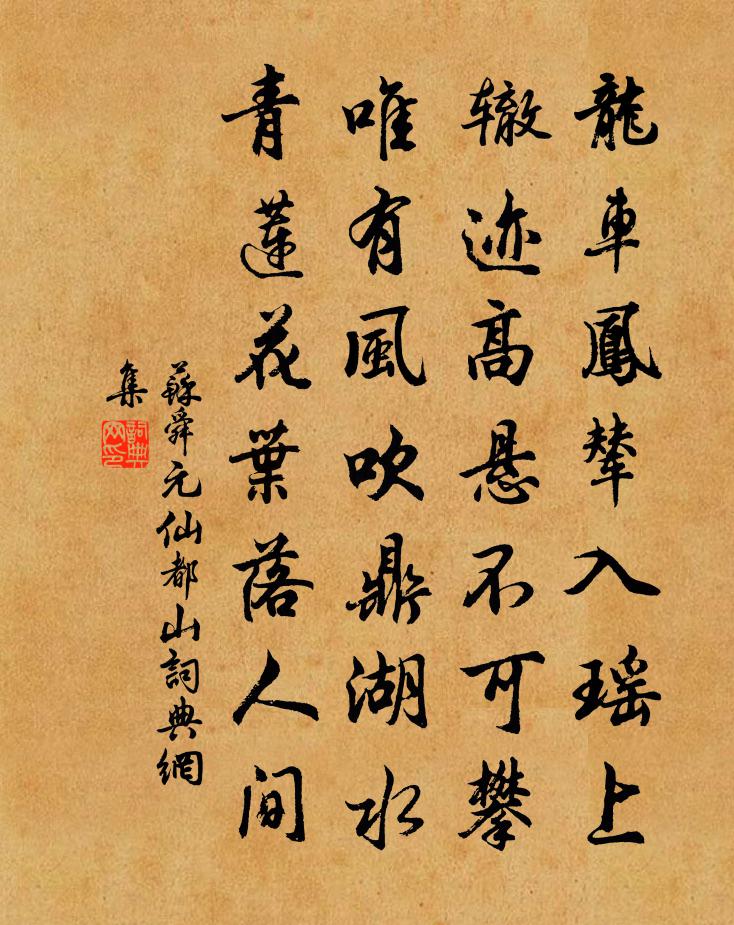 龍車鳳輦入瑶上
辙迹高悬不可攀
唯有風吹鼎湖水
青蓮花葉落人间
蘇舜元仙都山詞典網
集
詞典
网印